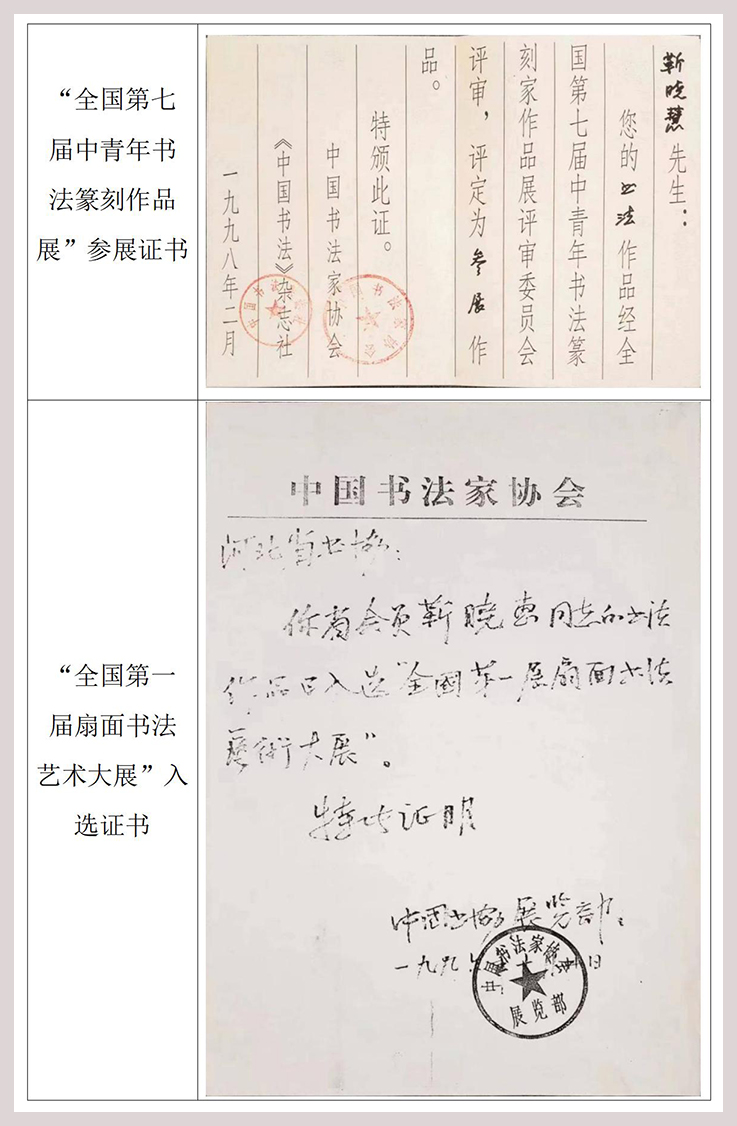 “全国第七
届中青年书
法篆刻作品
展”参展证书
靳晓慧先生：
您的书法作品经全
国第七届中青年书法篆
刻家作品展评审委员会
评审，评定为参展作
品。
特颁此证。
中国书法家协会
《中国书法》杂志社
一九九八年二月
“全国第一
届扇面书法
艺术大展”入
选证书
中国书法家协会
河北省书协：
你省会员靳晓惠同志的书法
作品已入选“全國第一展扇面书法
藝術大展”。
特此证明
中国书协展览部
一九九
日
中国书法家协会
展览部